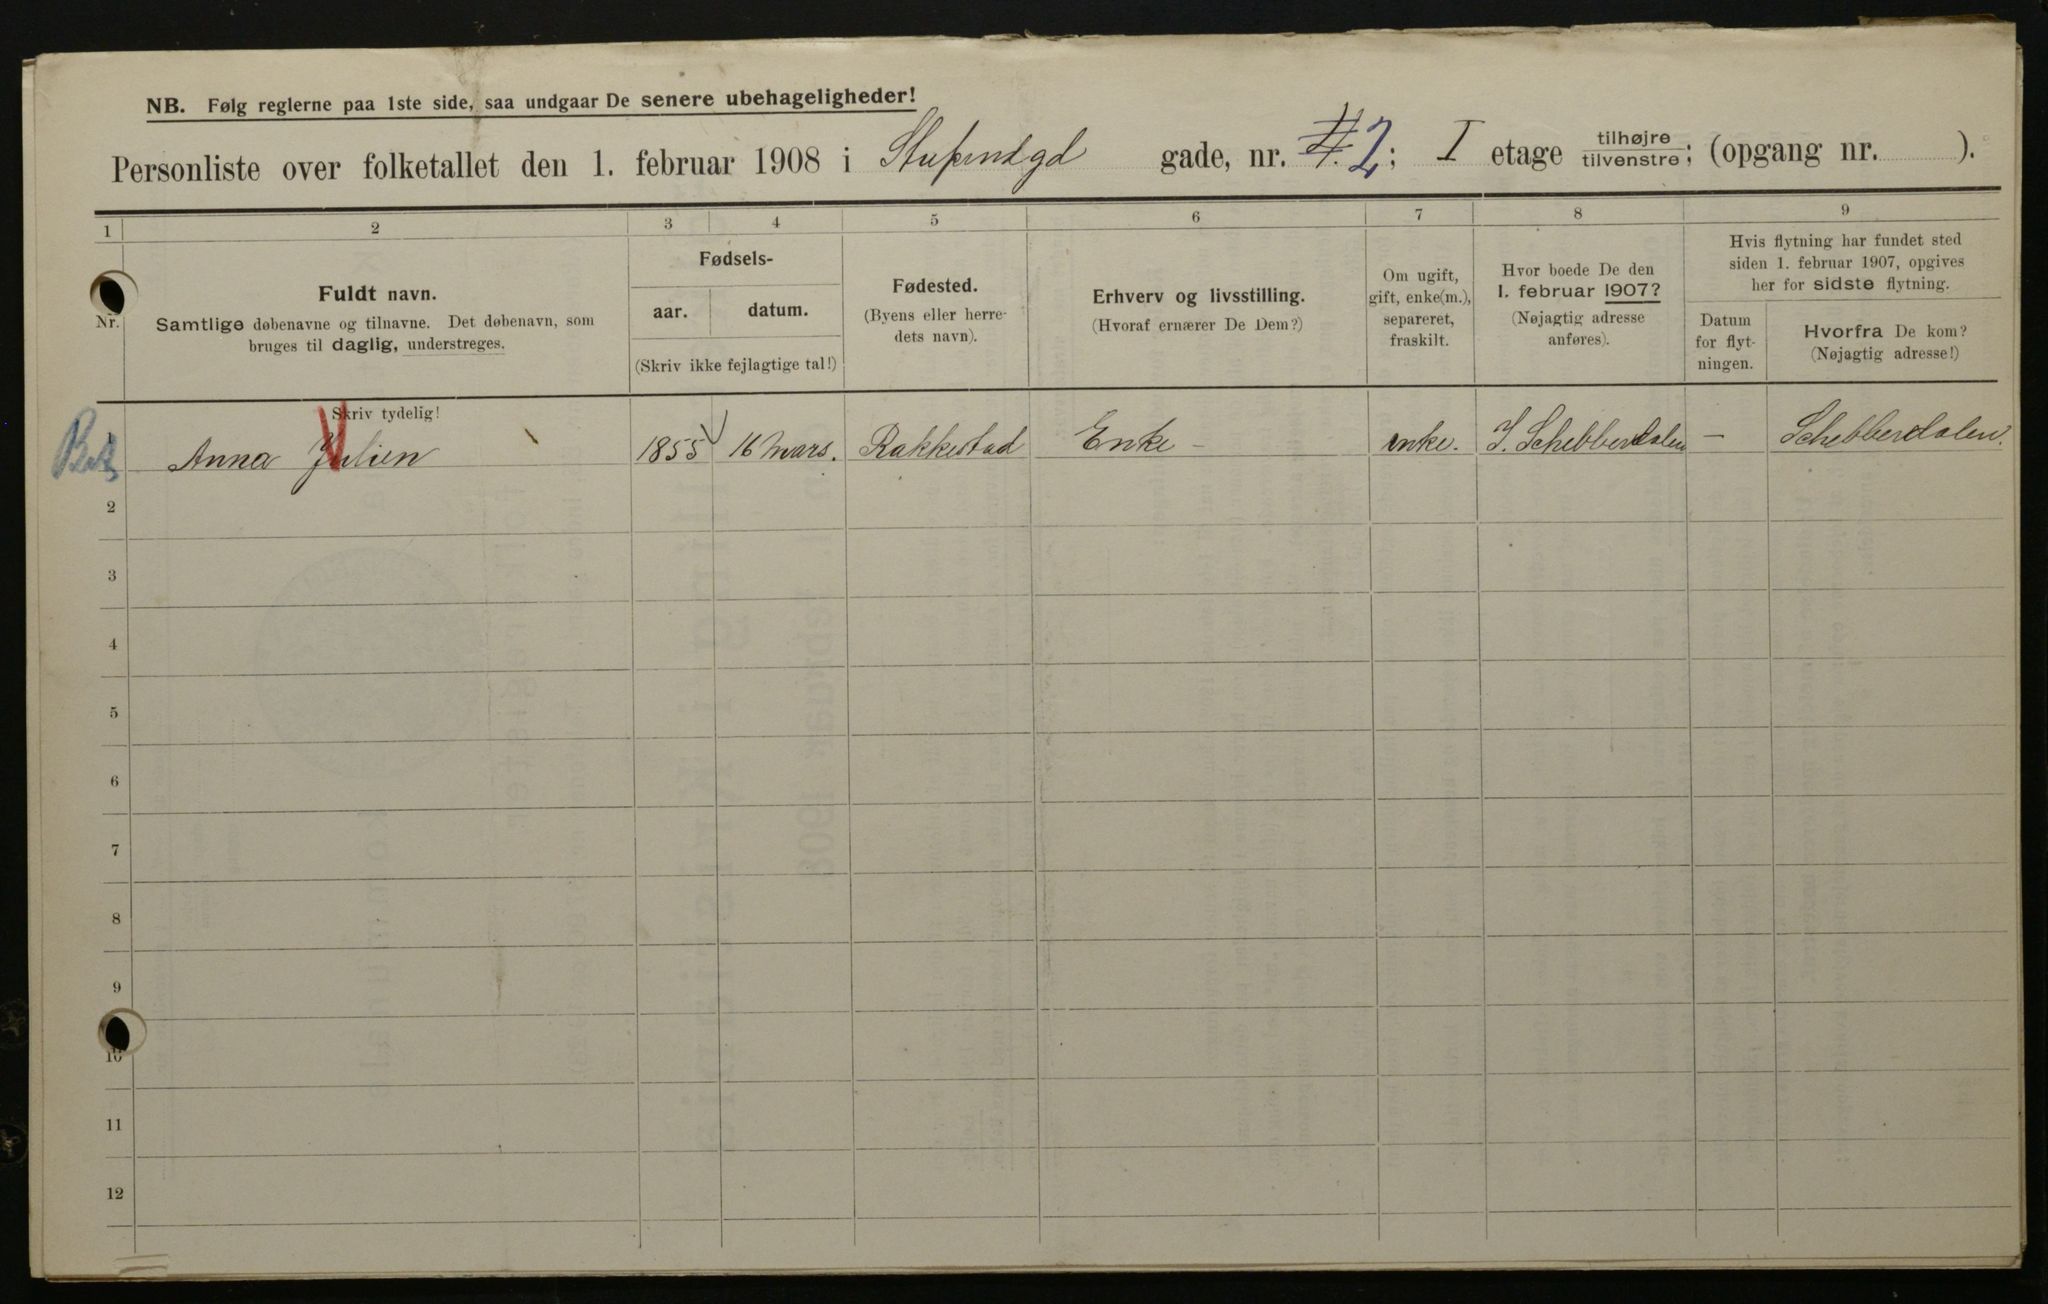 NB. Følg reglerne paa 1ste side, saa undgaar De senere ubehageligheder!
Personliste over folketallet den 1. februar 1908 i gade, nr. 2; I etage tilhøjre tilvenstre; (opgang nr. ).
1 2 3 4 5 6 7 8 9
Nr.
Fuldt navn.
Samtlige døbenavne og tilnavne. Det døbenavn, som
bruges til daglig, understreges.
Fødsels-
aar. datum.
(Skriv ikke fejlagtige tal!)
Fødested.
(Byens eller herre-
dets navn).
Erhverv og livsstilling.
(Hvoraf ernærer De Dem?)
Om ugift,
gift, enke(m.),
separeret,
fraskilt.
Hvor boede De den
1. februar 1907?
(Nøjagtig adresse
anføres).
Hvis flytning har fundet sted
siden 1. februar 1907, opgives
her for sidste flytning.
Datum
for flyt-
ningen.
Hvorfra De kom?
(Nøjagtig adresse!)
Skriv tydelig!
Anna Julien 1855 16 Mars. Rakkestad Enke — enke. Schebberdalen — Schebberdalen.
2
3
4
5
6
7
8
9
10
11
12